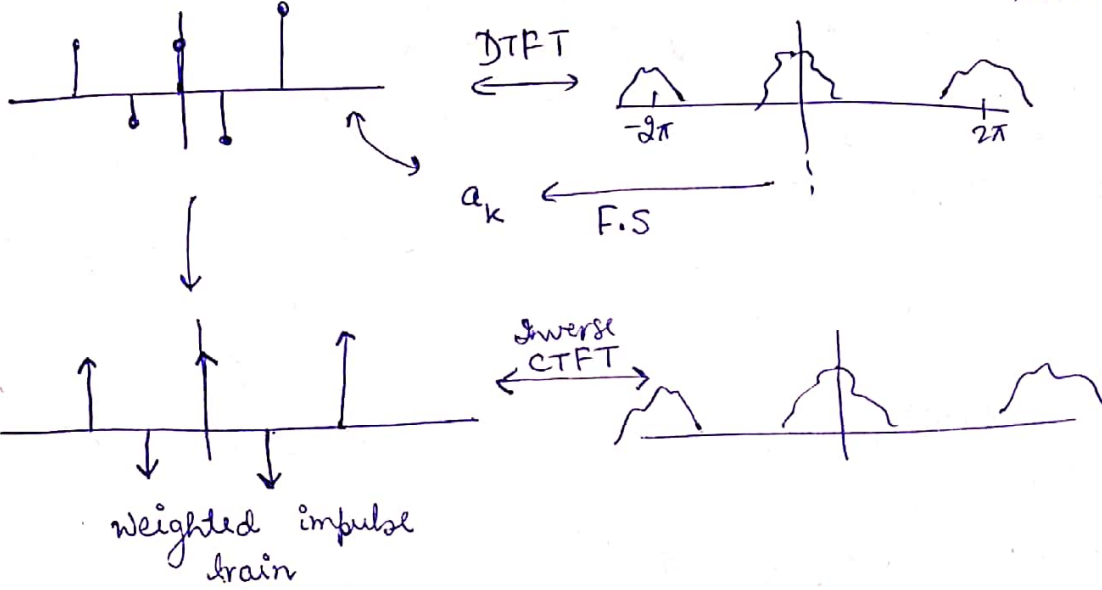 DTFT
-2π
2π
a_k
F.S
Inverse
CTFT
Weighted impulse
train